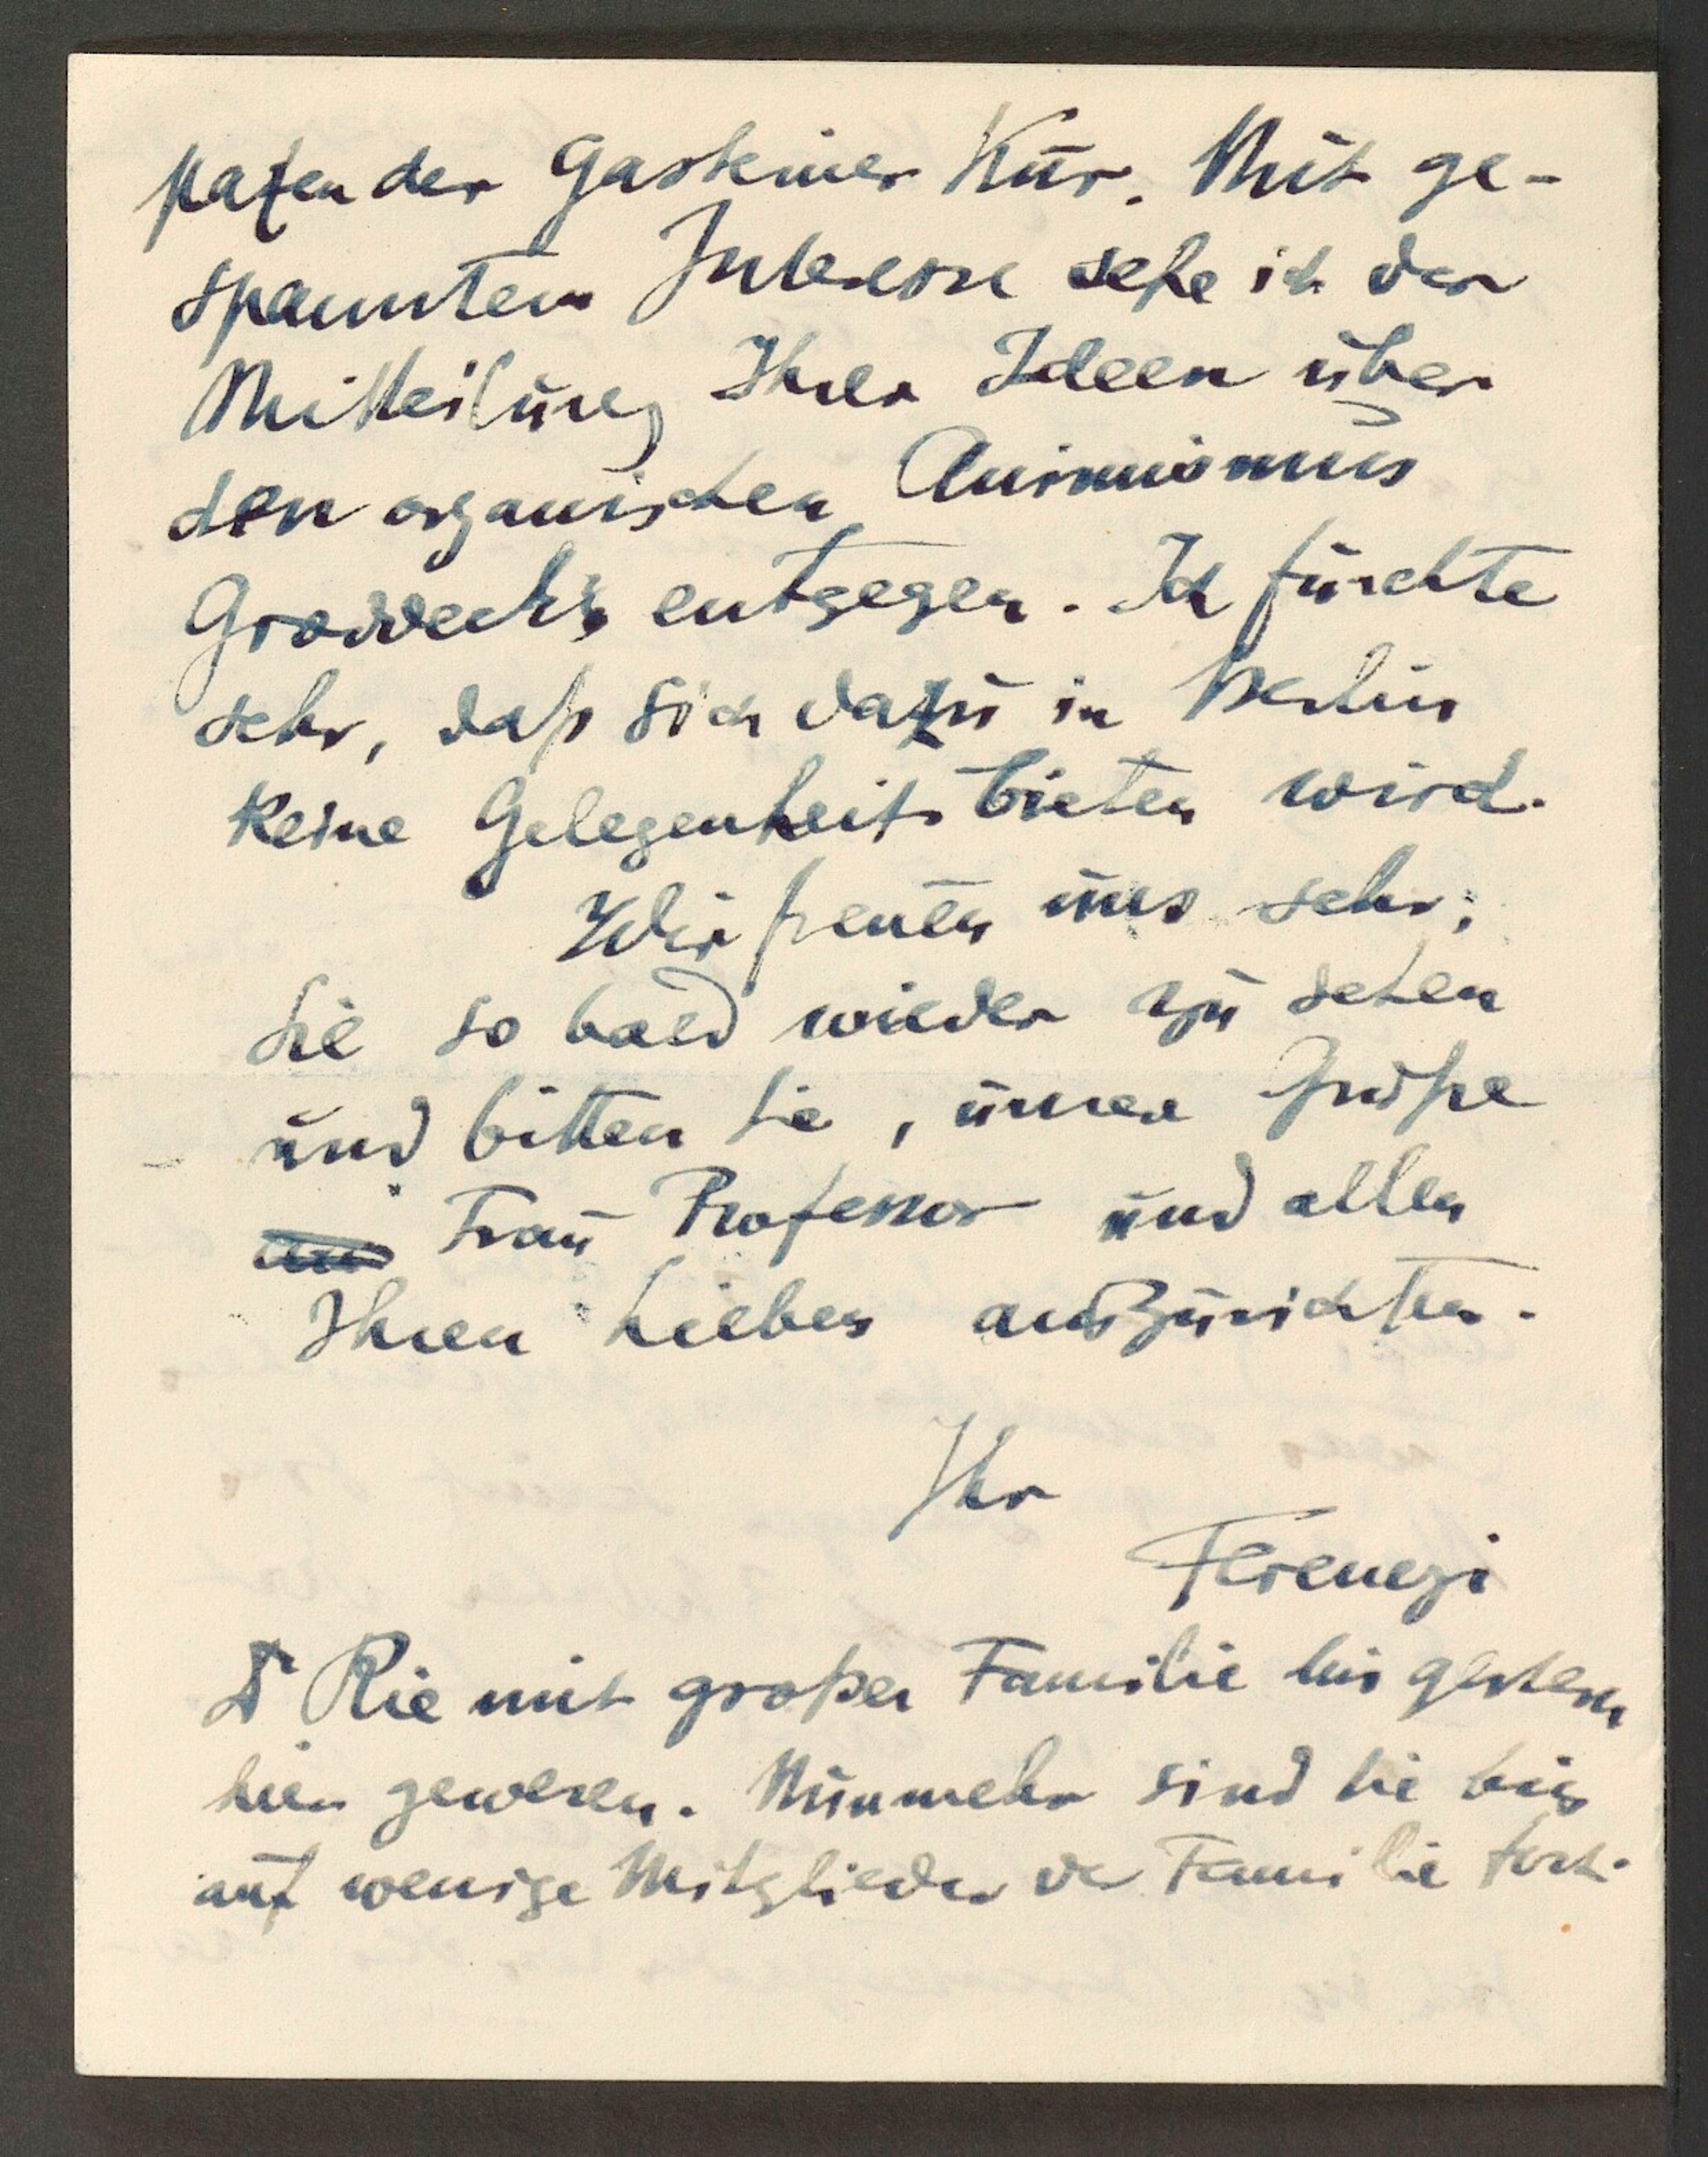 paxen der Gasteiner Kur. Mit ge-
spanntem Interesse sehe ich der
Mitteilung Ihrer Ideen über
den organischen Animismus
Groddeck's entgegen. Ich fürchte
sehr, daß sich dazu in Berlin
keine Gelegenheit bieten wird.
Wir freuen uns sehr,
Sie so bald wieder zu sehen
und bitten Sie, unsere Grüße
Frau Professor und allen
Ihren Lieben auszurichten.
Ihr
Ferenczi
Dr Rie mit großer Familie bis gestern
hier gewesen. Nunmehr sind sie bis
auf wenige Mitglieder der Familie fort.